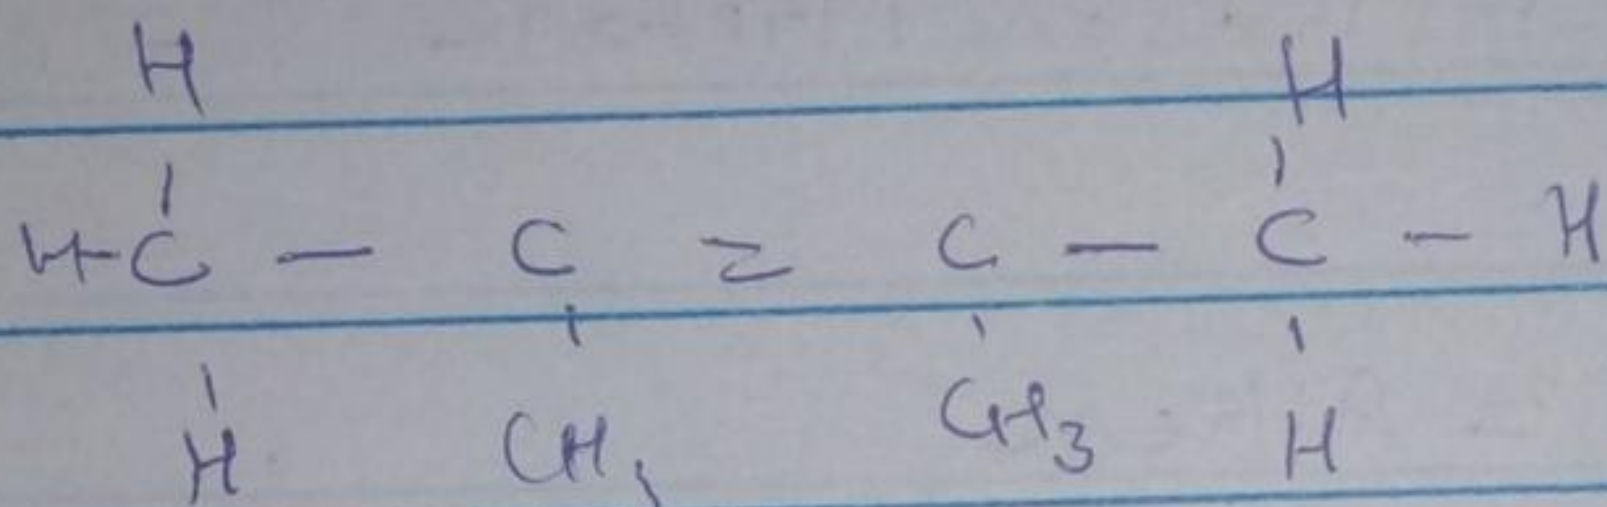 H H
H-C — C = C — C - H
H CH, CH3 H